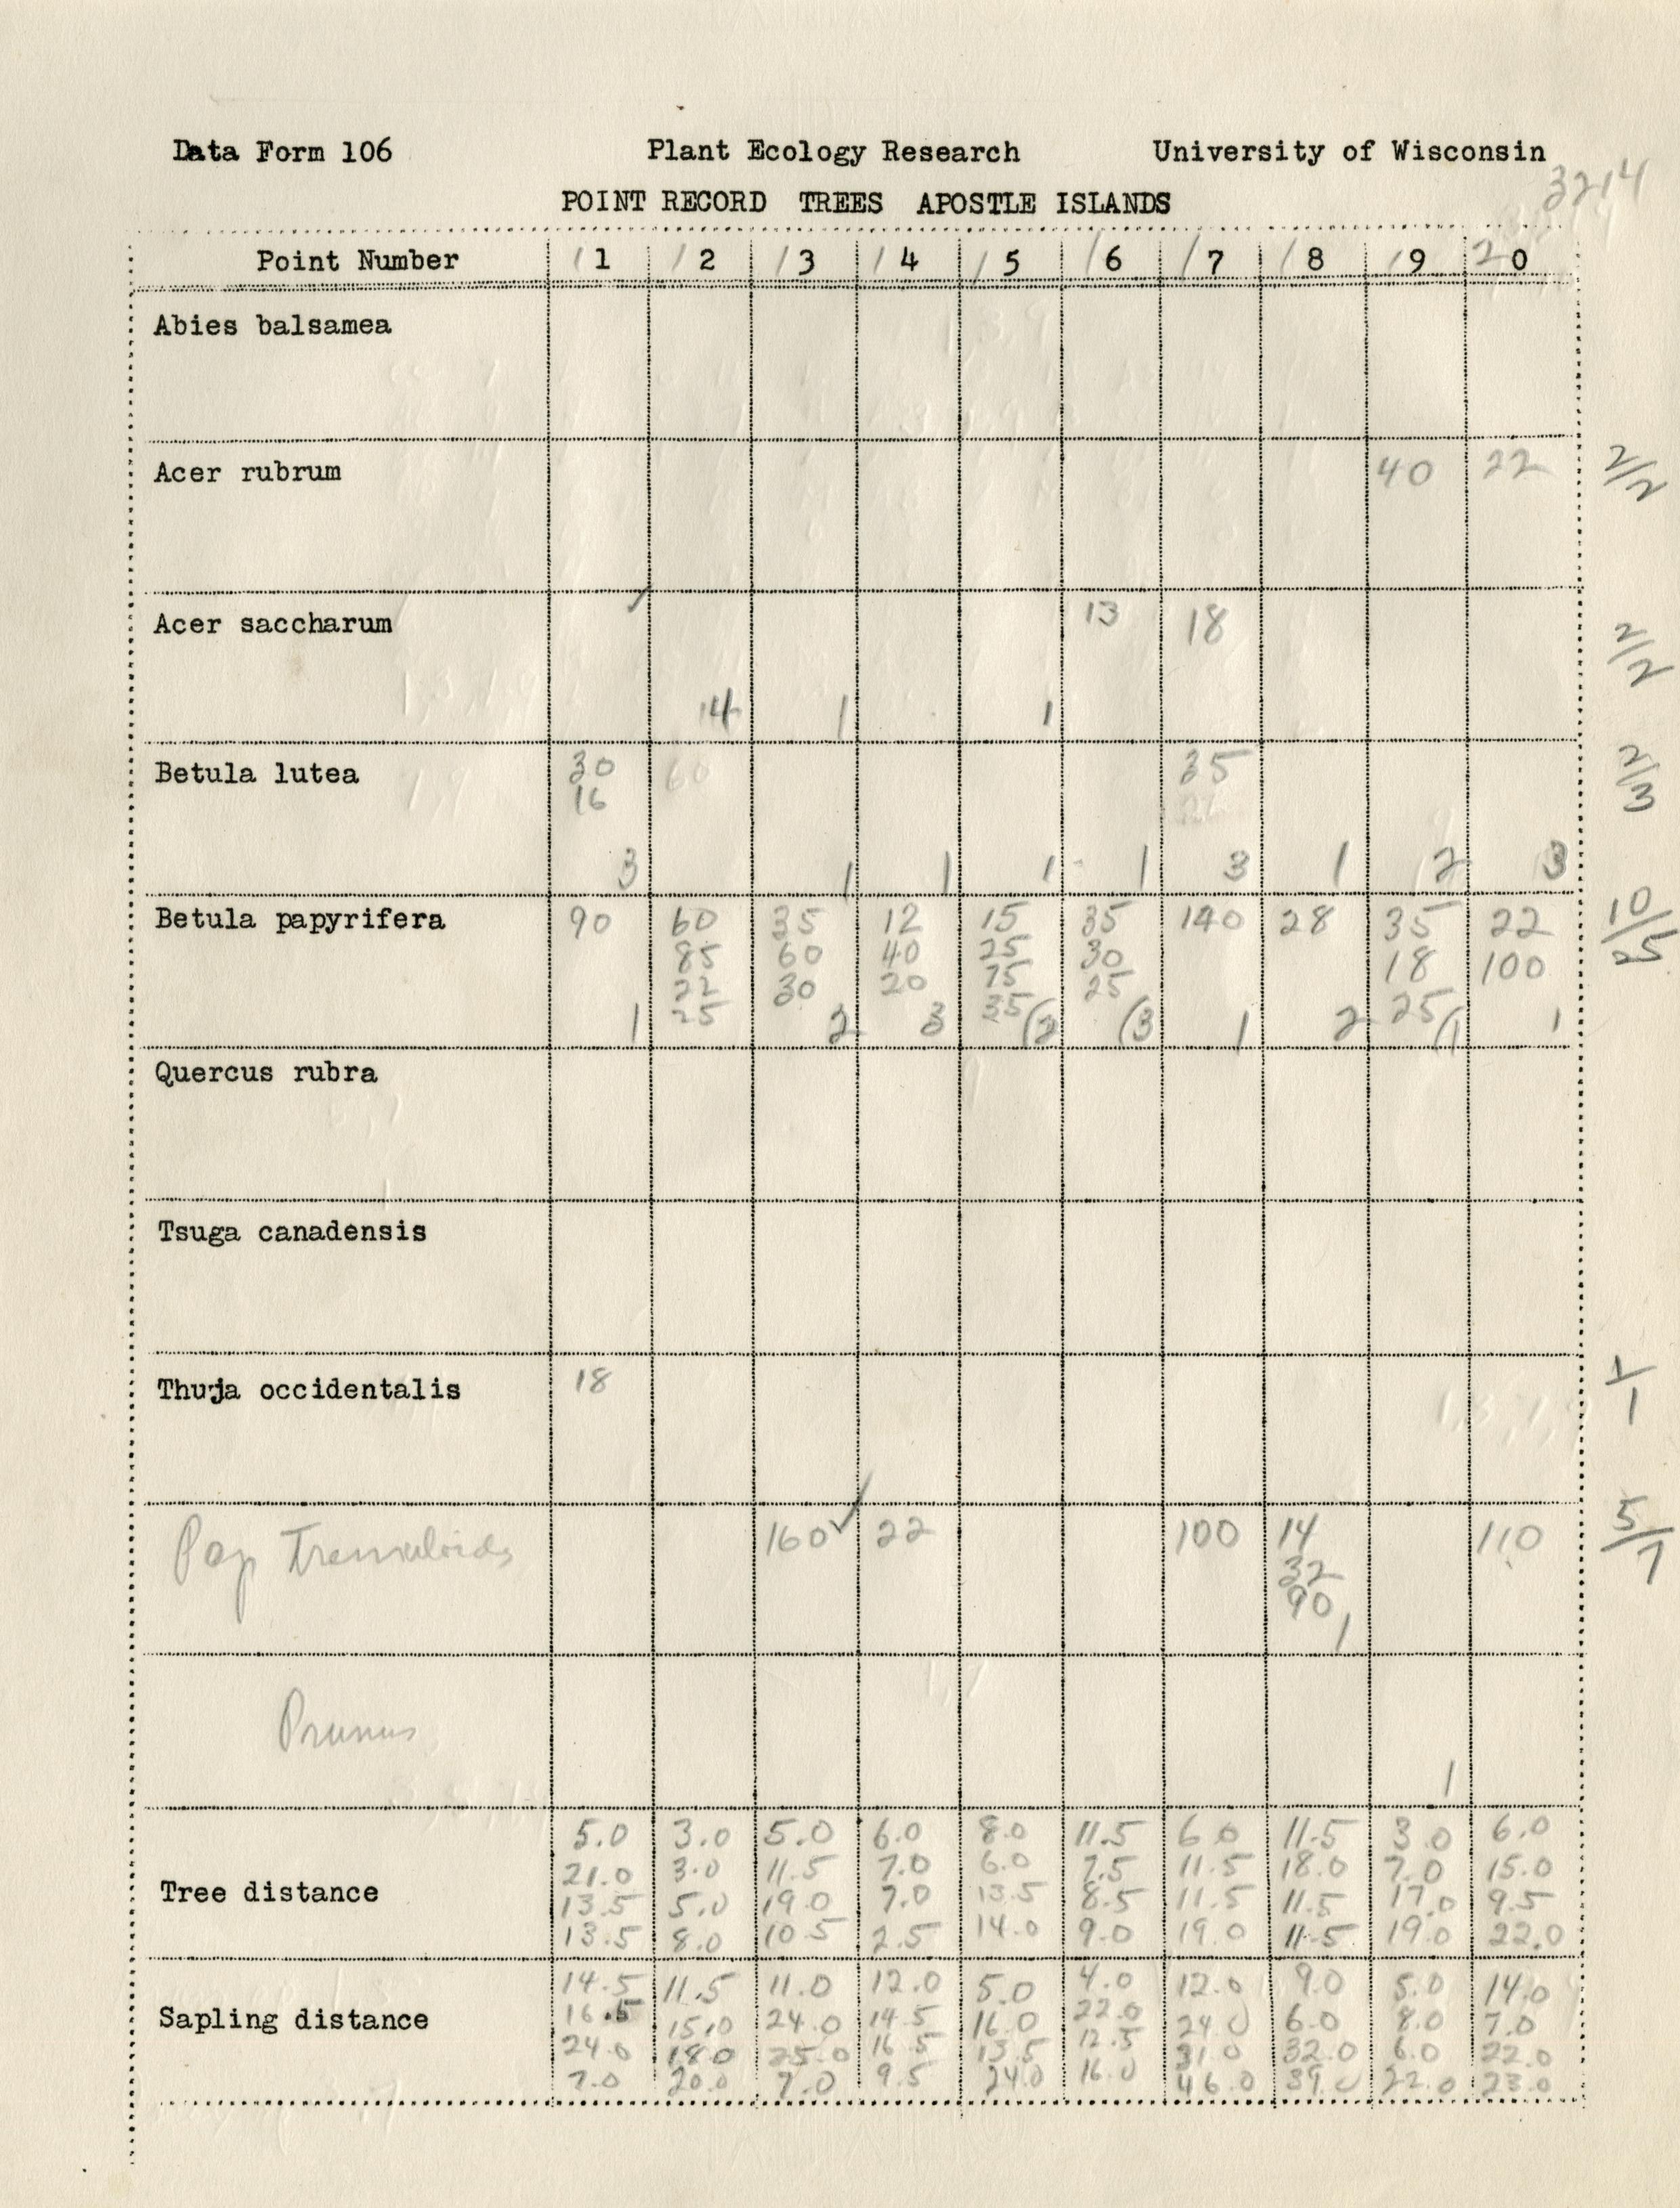 Data Form 106 Plant Ecology Research University of Wisconsin
3214
POINT RECORD TREES APOSTLE ISLANDS
Point Number 11 12 13 14 15 16 17 18 19 20
Abies balsamea
Acer rubrum 40 22 2/2
Acer saccharum 13 18 2/2
14 1 1
Betula lutea 30 60 35 2/3
16
3 1 1 1 1 3 1 2 3
Betula papyrifera 90 60 35 12 15 35 140 28 35 22 10/25
85 60 40 25 30 18 100
22 30 20 75 25
1 25 2 3 35 (2 (3 1 2 25 (1 1
Quercus rubra
Tsuga canadensis
Thuja occidentalis 18 1/1
Pop Tremuloides 160✓ 22 100 14 110 5/7
32
90
1
Prunus
1
5.0 3.0 5.0 6.0 8.0 11.5 6.0 11.5 3.0 6.0
21.0 3.0 11.5 7.0 6.0 7.5 11.5 18.0 7.0 15.0
Tree distance 13.5 5.0 19.0 7.0 13.5 8.5 11.5 11.5 17.0 9.5
13.5 8.0 10.5 2.5 14.0 9.0 19.0 11.5 19.0 22.0
14.5 11.5 11.0 12.0 5.0 4.0 12.0 9.0 5.0 14.0
Sapling distance 16.5 15.0 24.0 14.5 16.0 22.0 24.0 6.0 8.0 7.0
24.0 18.0 25.0 16.5 13.5 12.5 31.0 32.0 6.0 22.0
7.0 20.0 7.0 9.5 24.0 16.0 46.0 39.0 22.0 23.0